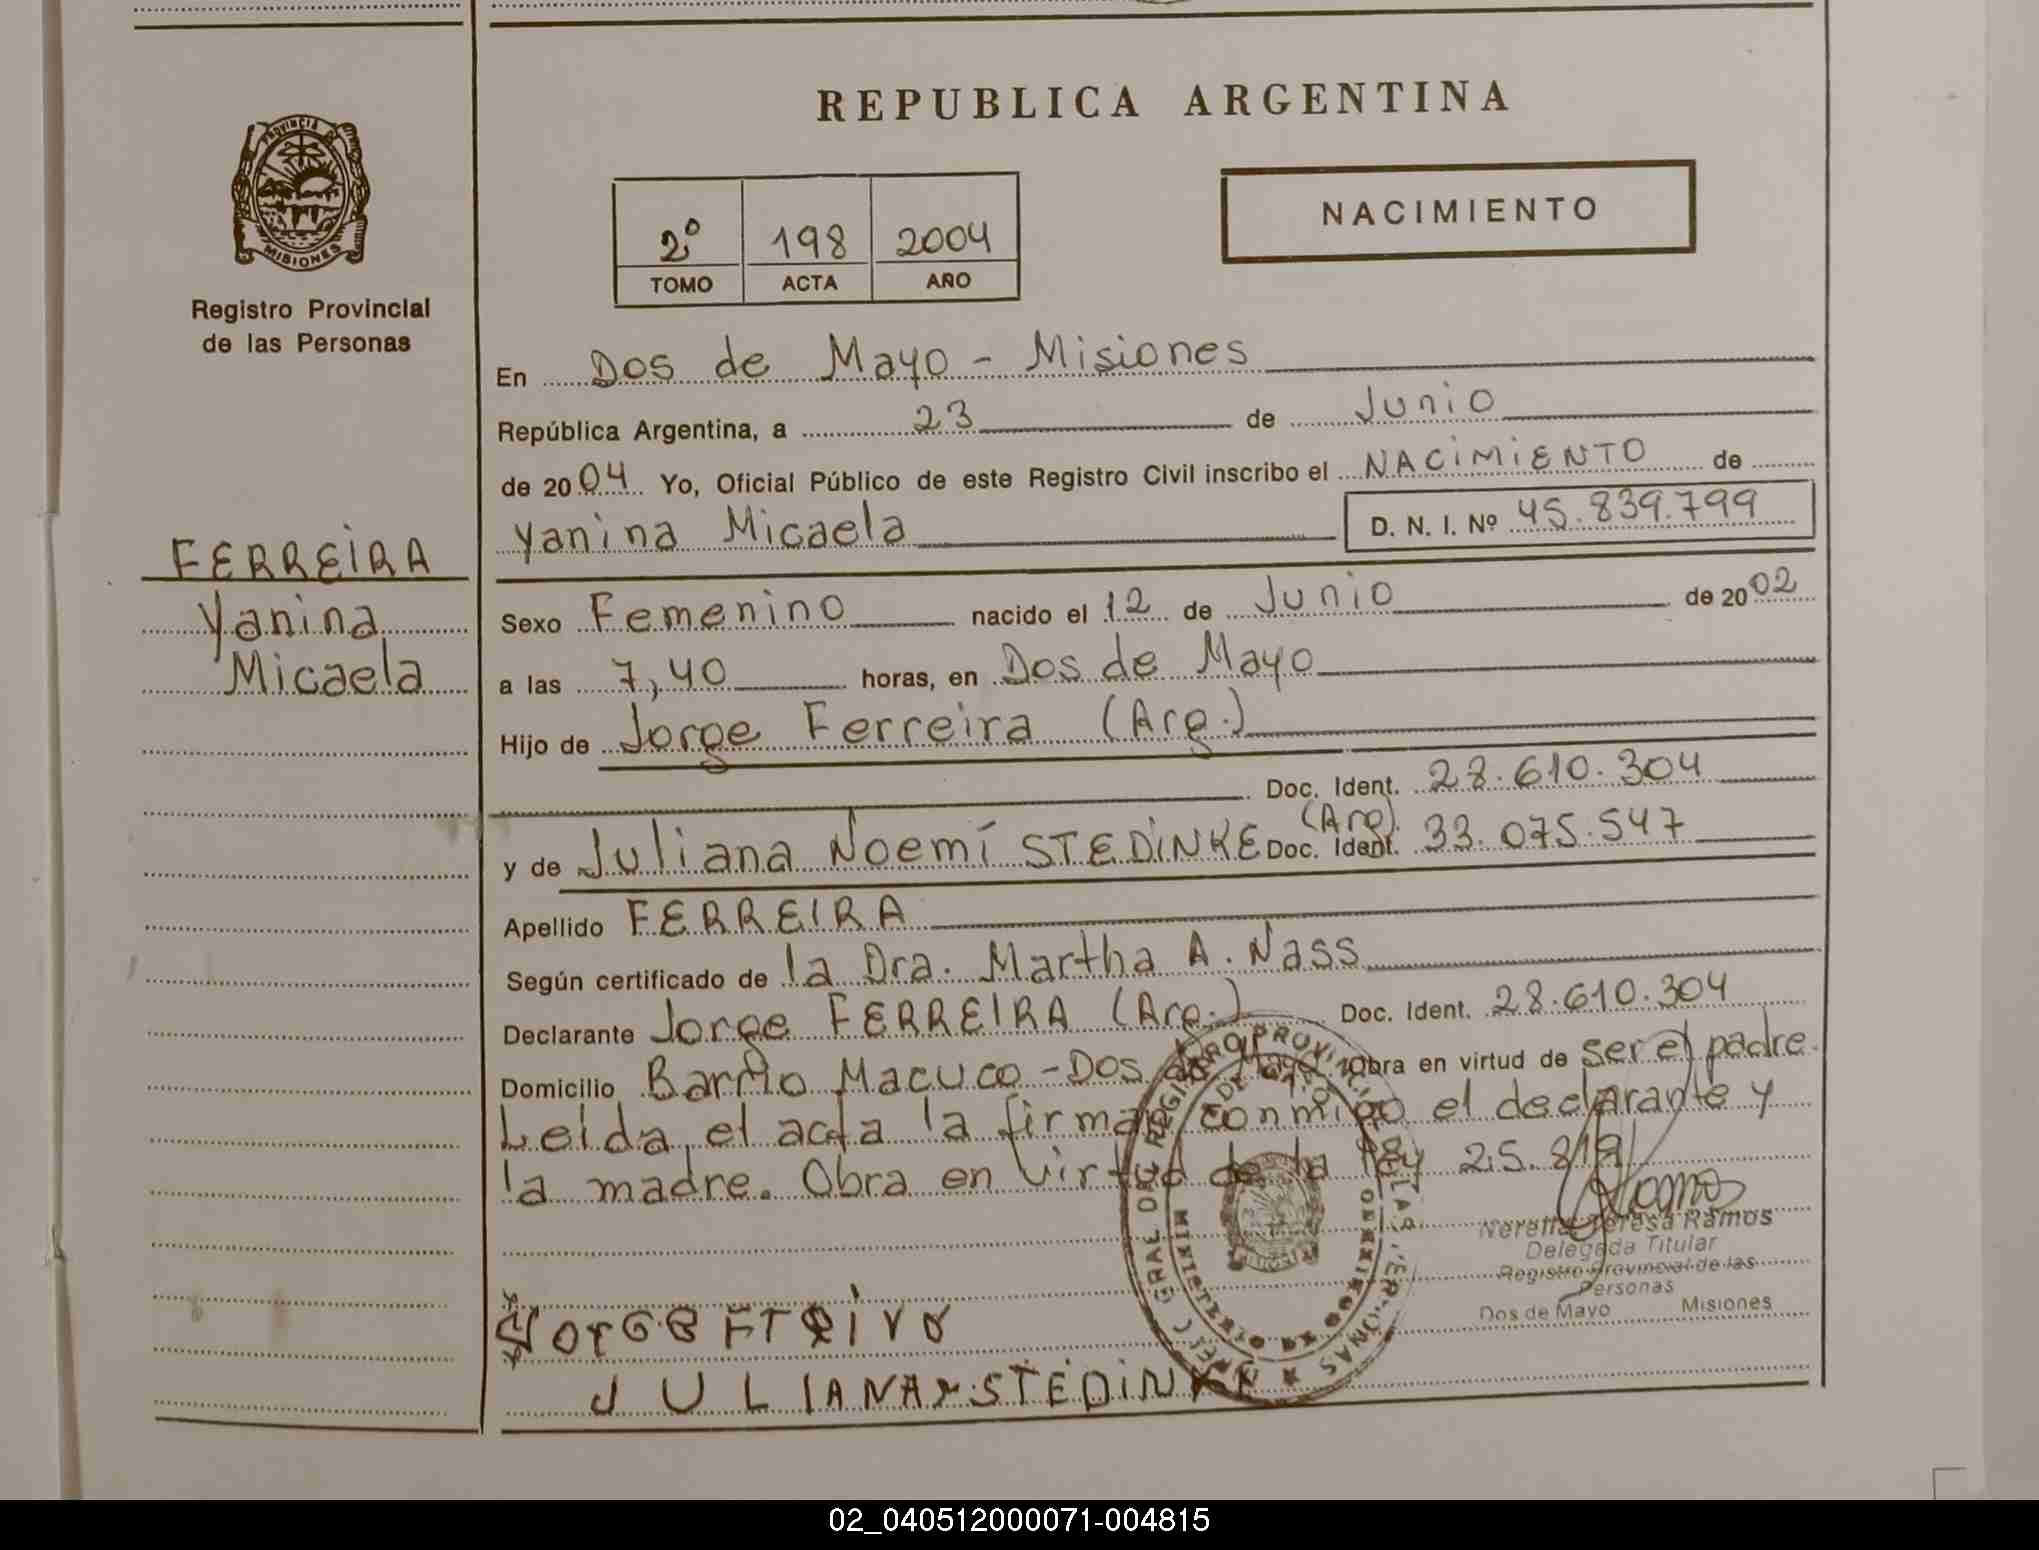 REPUBLICA ARGENTINA
PROVINCIA DE
MISIONES
Registro Provincial
de las Personas
2º 198 2004
TOMO ACTA AÑO
NACIMIENTO
FERREIRA
Yanina
Micaela
En Dos de Mayo - Misiones
República Argentina, a 23 de Junio
de 2004 Yo, Oficial Público de este Registro Civil inscribo el NACIMIENTO de
Yanina Micaela D. N. I. Nº 45.839.799
Sexo Femenino nacido el 12 de Junio de 2002
a las 7,40 horas, en Dos de Mayo
Hijo de Jorge Ferreira (Arg.)
Doc. Ident. 28.610.304
y de Juliana Noemí STEDINKE (Arg). Doc. Ident. 33.075.547
Apellido FERREIRA
Según certificado de la Dra. Martha A. Nass
Declarante Jorge FERREIRA (Arg.) Doc. Ident. 28.610.304
Domicilio Barrio Macuco - Dos de Mayo Obra en virtud de ser el padre.
Leida el acta la firman conmigo el declarante y
la madre. Obra en virtud de la ley 25.819
Teresa Ramos
Delegada Titular
Registro Provincial de las
Personas
Dos de Mayo Misiones
JULIANA STEDINKE
02_040512000071-004815